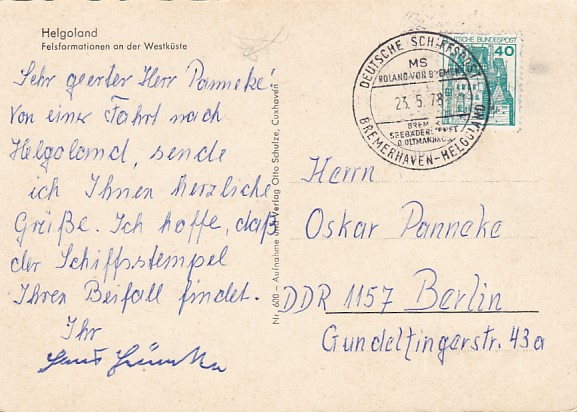 Helgoland
Felsformationen an der Westküste
Sehr geerter Herr Panneke'
Von einer Fahrt nach
Helgoland, sende
ich Ihnen herzliche
Grüße. Ich hoffe, daß
der Schiffsstempel
Ihren Beifall findet.
Ihr
Nr. 600 – Aufnahme und Verlag Otto Schulze, Cuxhaven
DEUTSCHE SCHIFFSPOST
MS
ROLAND VON BREMEN
23.5.78
BREM
SEEBÄDER
D. OLTMANN
BREMERHAVEN-HELGOLAND
DEUTSCHE BUNDESPOST
40
Herrn
Oskar Panneke
DDR 1157 Berlin
Gundelfingerstr. 43a